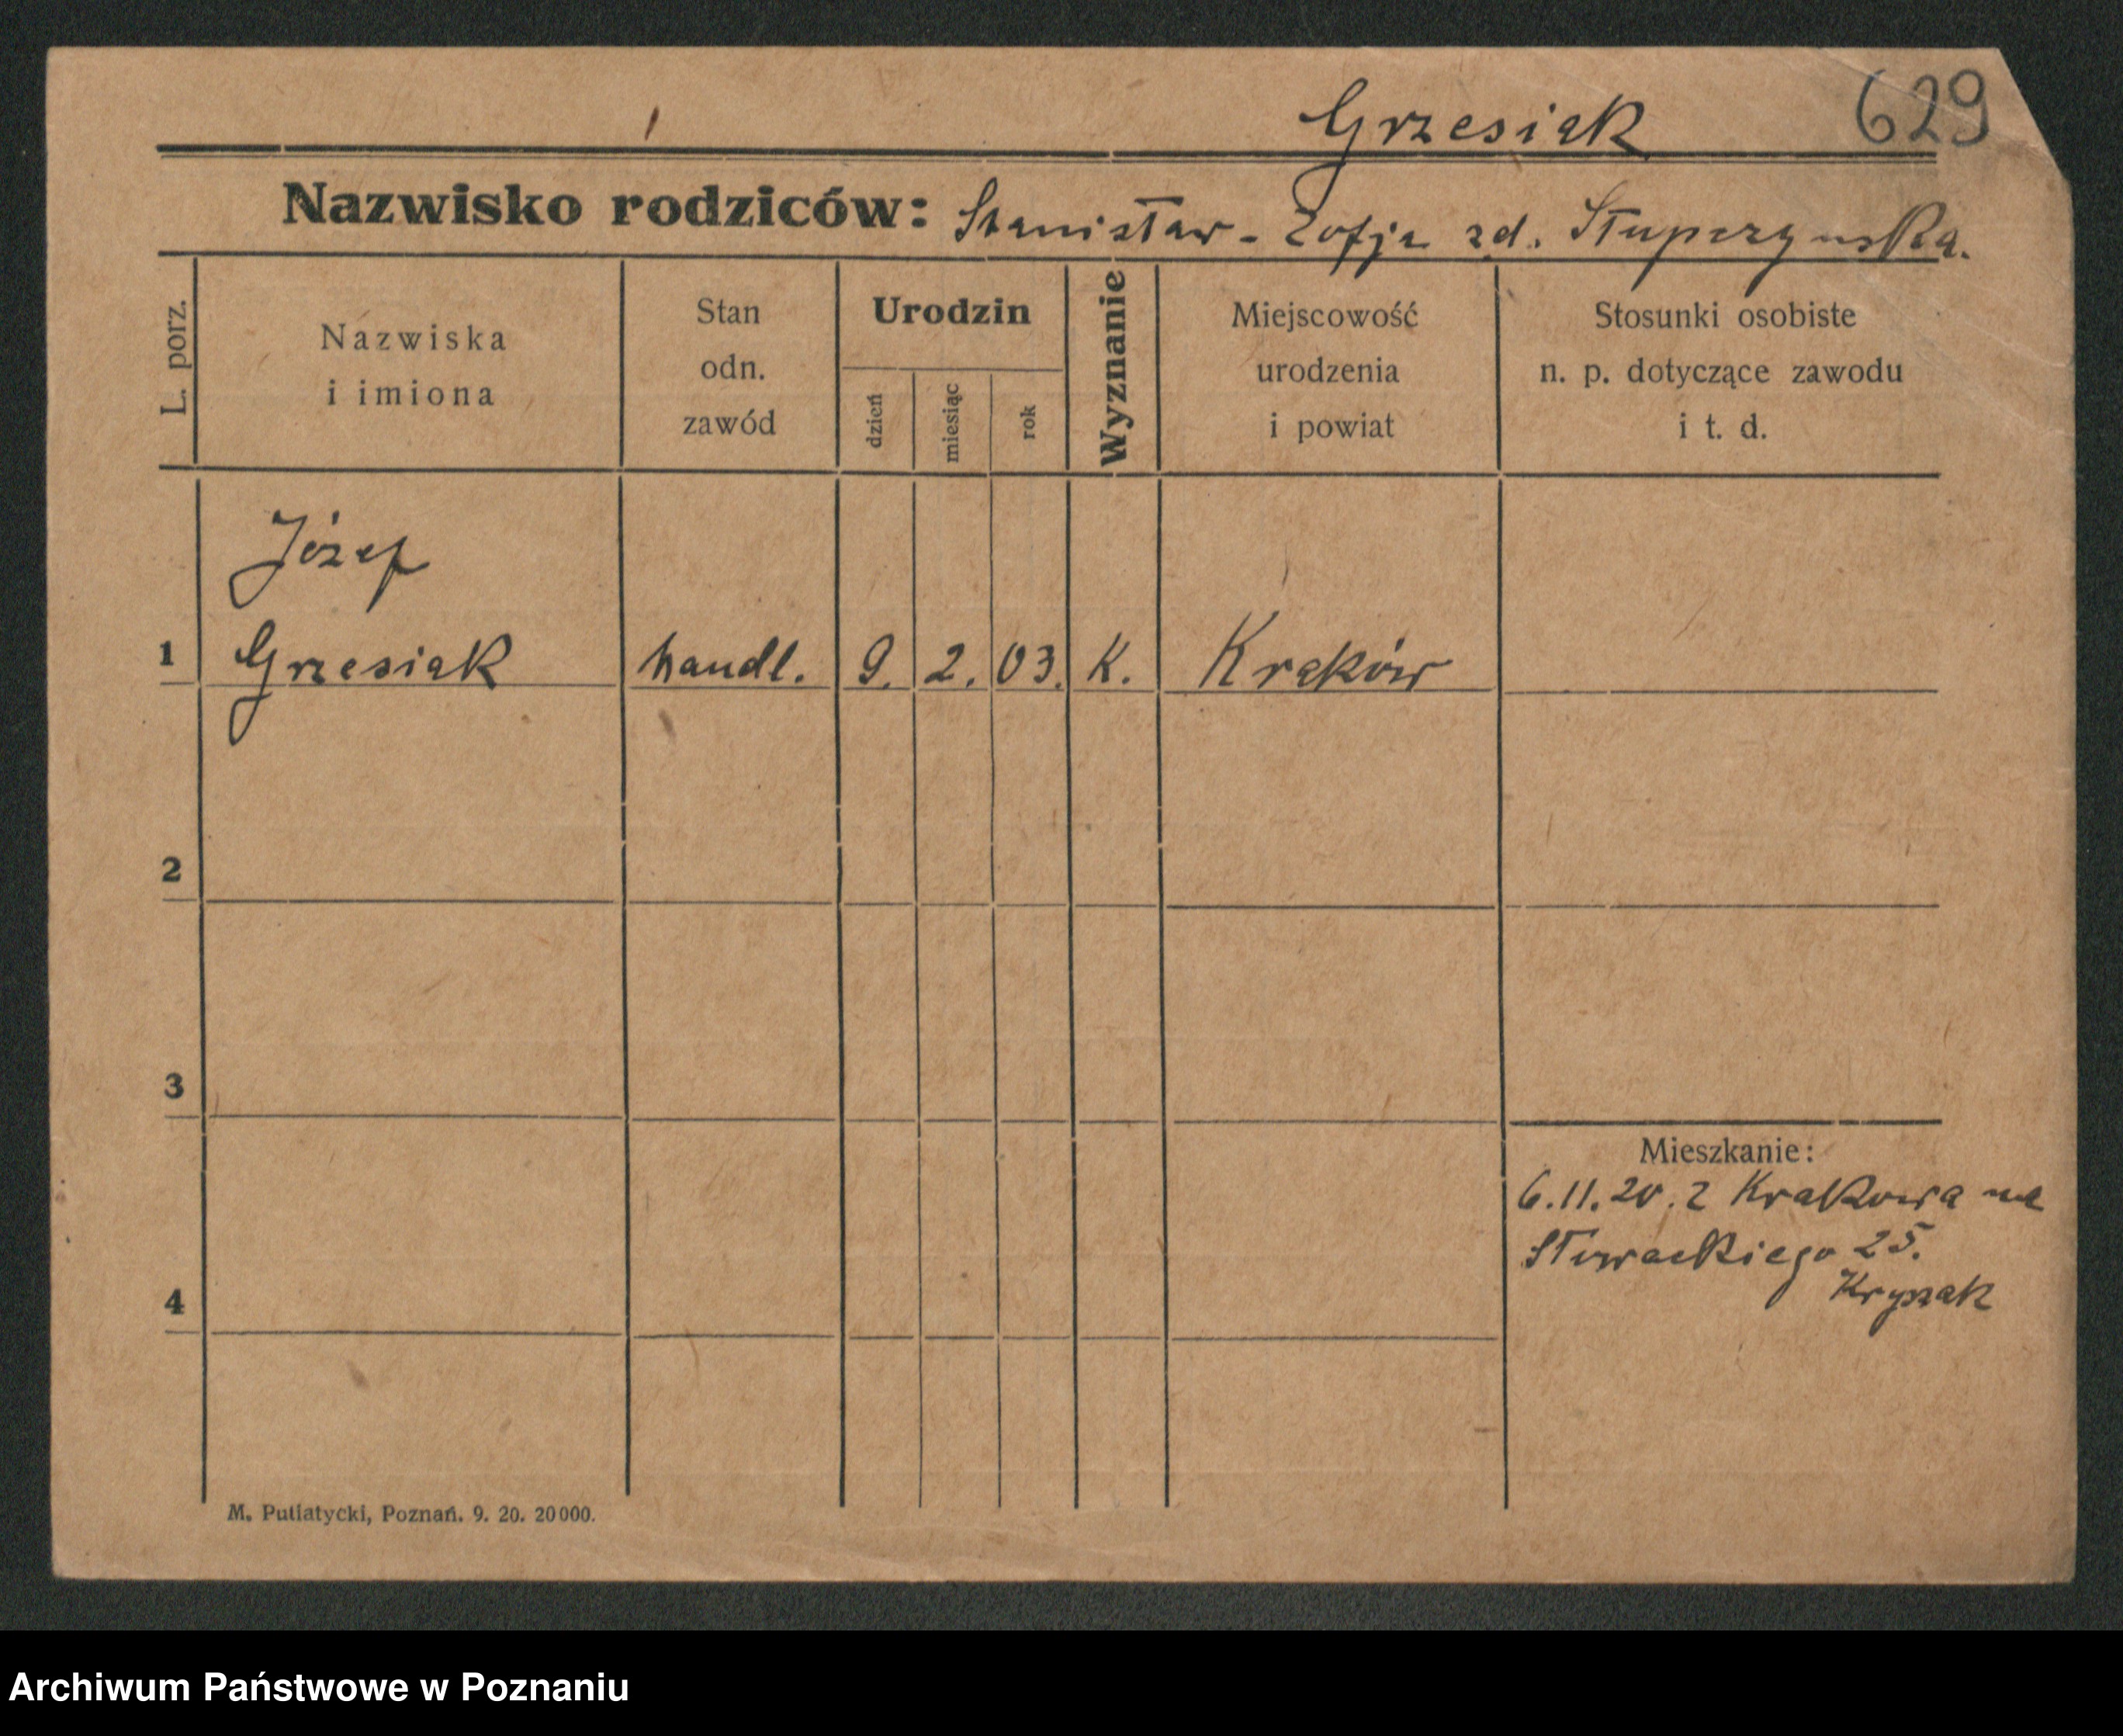 Grzesiak 629
Nazwisko rodziców: Stanisław - Zofja zd. Słupczyńska.
L. porz.
Nazwiska
i imiona
Stan
odn.
zawód
Urodzin
dzień
miesiąc
rok
Wyznanie
Miejscowość
urodzenia
i powiat
Stosunki osobiste
n. p. dotyczące zawodu
i t. d.
Józef
1 Grzesiak handl. 9. 2. 03. K. Kraków
2
3
Mieszkanie:
6.11.20. z Krakowa na
Słowackiego 25.
Kryszak
4
M. Putiatycki, Poznań. 9. 20. 20000.
Archiwum Państwowe w Poznaniu